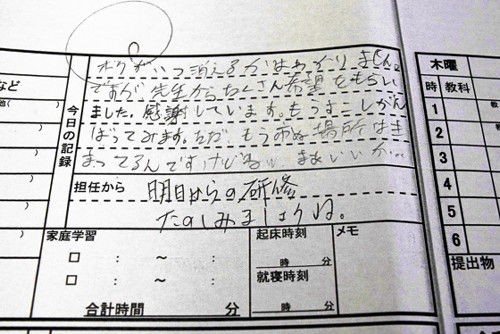 木曜
など
ボクがいつ消えるかはわかりません。
ですが、先生からたくさん希望をもらい
ました。感謝しています。もうすこしがん
ばってみます。ただ、もう市ぬ場所はき
まってるんですけどね。まあいいか…
今日の記録
時 教科
1
2
3
4
5
6
担任から
明日からの研修
たのしみましょうね。
家庭学習
起床時刻
メモ
: ~ :
時 分
: ~ :
就寝時刻
合計時間 分
時 分
提出物